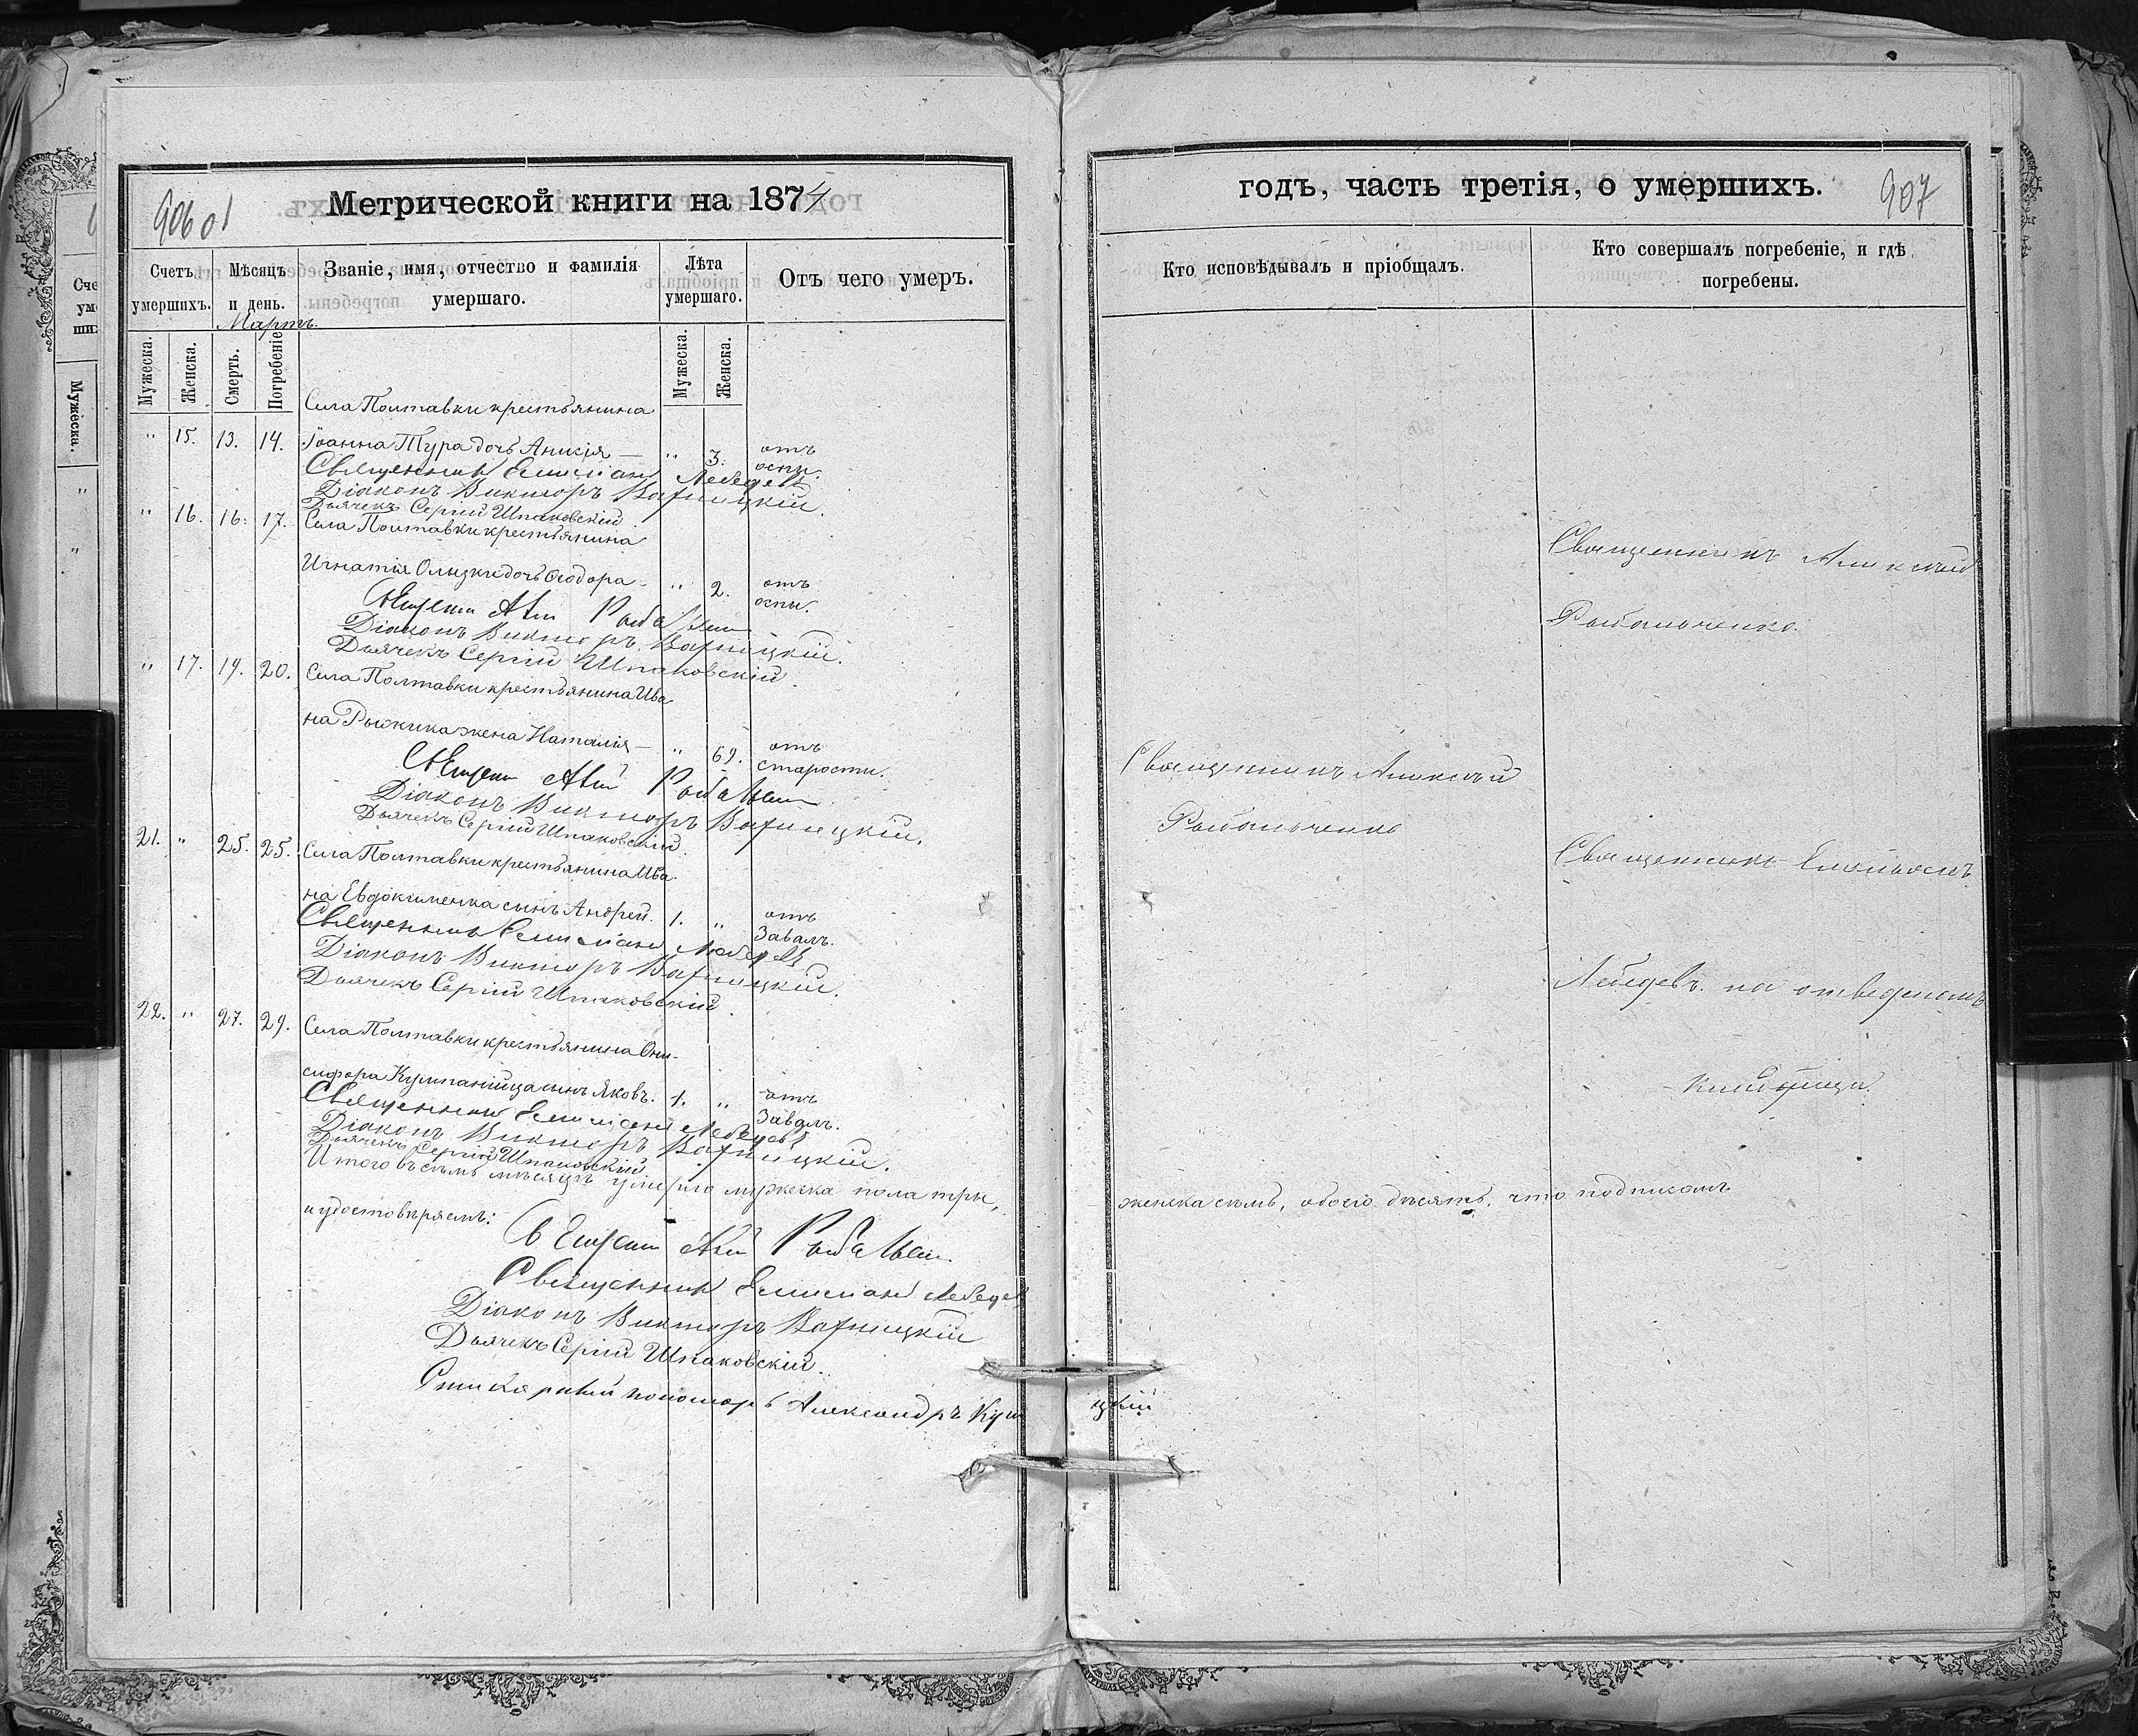 906 об
Метрической книги на 1874
Счетъ умершихъ.
Мѣсяцъ и день.
Мартъ.
Званіе, имя, отчество и фамилія умершаго.
Лѣта умершаго.
Отъ чего умеръ.
Мужеска.
Женска.
Смерть.
Погребеніе
Мужеска.
Женска.
Села Полтавки крестьянина
" 15. 13. 14. Іоанна Тура дочь Анисія — " 3. отъ оспы.
Священникъ Емиліанъ Лебедевъ
Діаконъ Викторъ Варницкій.
Дьячекъ Сергій Шпаковскій.
" 16. 16. 17. Села Полтавки крестьянина
Игнатія Олызки дочь Ѳеодора - " 2. отъ оспы.
Діаконъ Викторъ Варницкій.
Дьячекъ Сергій Шпаковскій.
" 17. 19. 20. Села Полтавки крестьянина Ива
на Рыжика жена Наталія — " 69. отъ старости.
Діаконъ Викторъ Варницкій.
Дьячекъ Сергій Шпаковскій.
21. " 25. 25. Села Полтавки крестьянина Ива-
на Евдокименка сынъ Андрей. 1. " отъ Завалъ.
Священникъ Емиліанъ Лебедевъ
Діаконъ Викторъ Варницкій.
Дьячекъ Сергій Шпаковскій.
22. " 27. 29. Села Полтавки крестьянина Они-
сифора Кумпанійца сынъ Яковъ. 1. " отъ Завалъ.
Священникъ Емиліанъ Лебедевъ
Діаконъ Викторъ Варницкій.
Дьячекъ Сергій Шпаковскій
Итого въ семъ мѣсяцѣ умерло мужеска пола три,
и удостовѣряемъ:
Священникъ Емиліанъ Лебедевъ
Діаконъ Викторъ Варницкій
Дьячекъ Сергій Шпаковскій.
пономарь Александръ
годъ, часть третія, о умершихъ.
907
Кто исповѣдывалъ и пріобщалъ.
Кто совершалъ погребеніе, и гдѣ погребены.
Священникъ Алексѣй
Рыбальченко.
Священникъ Алексѣй
Рыбальченко
Священникъ Емильянъ
Лебедевъ на отведеномъ
кладбище
женска семь, обоего десять, что подписомъ
цкій